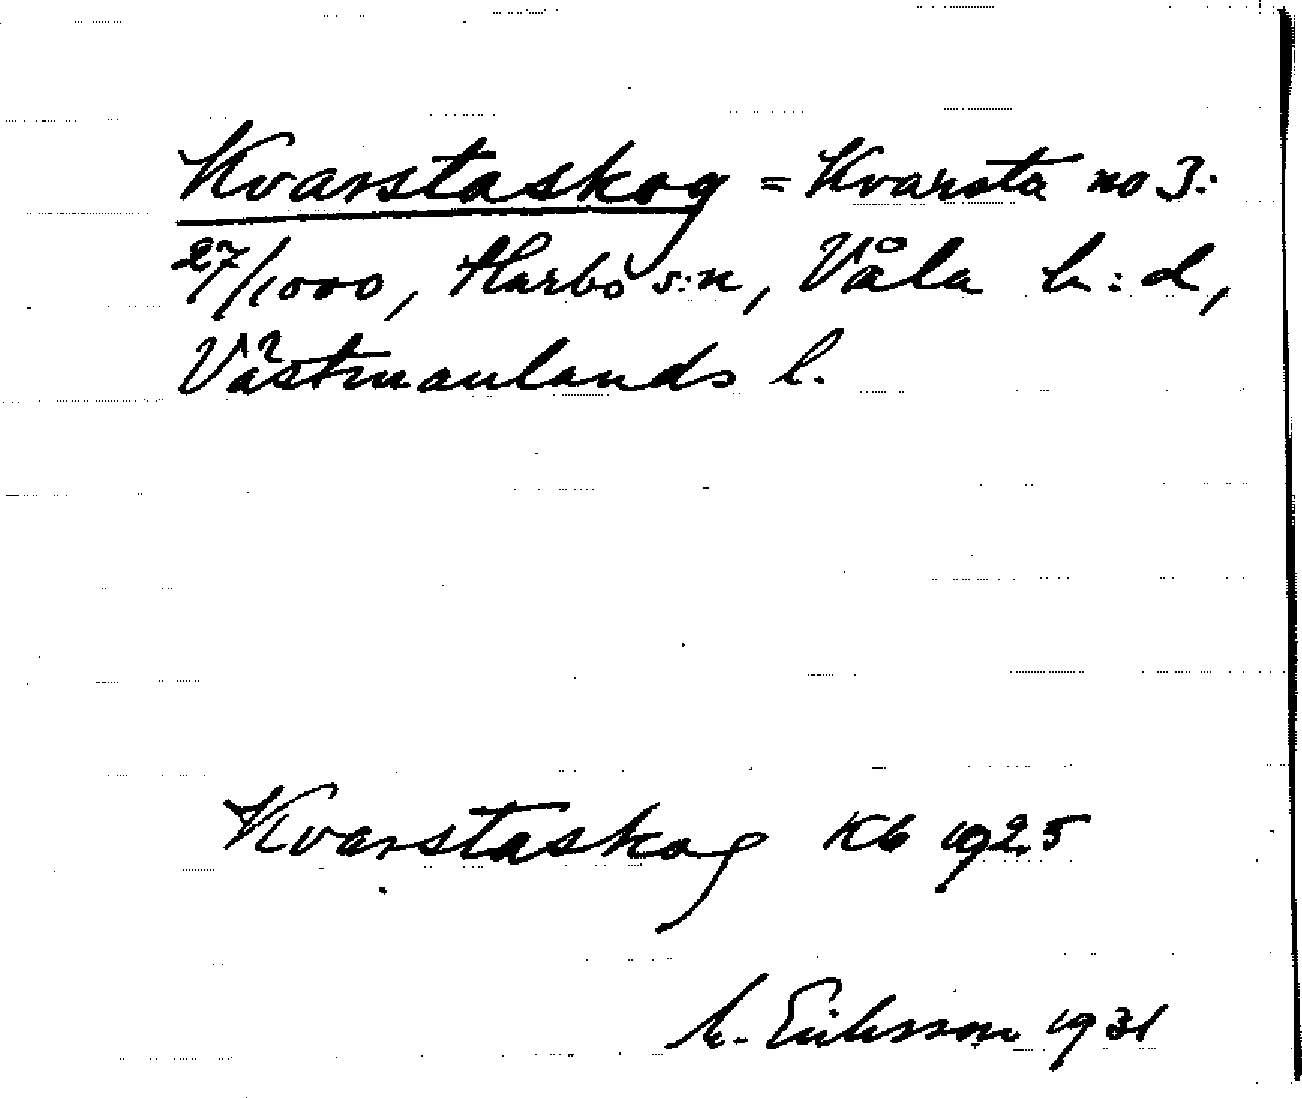 Kvarstaskog = Kvarsta no 3:
27/1000, Harbo s:n, Våla h:d,
Västmanlands l.
Kvarstaskog Kb 1925
Eriksson 1931